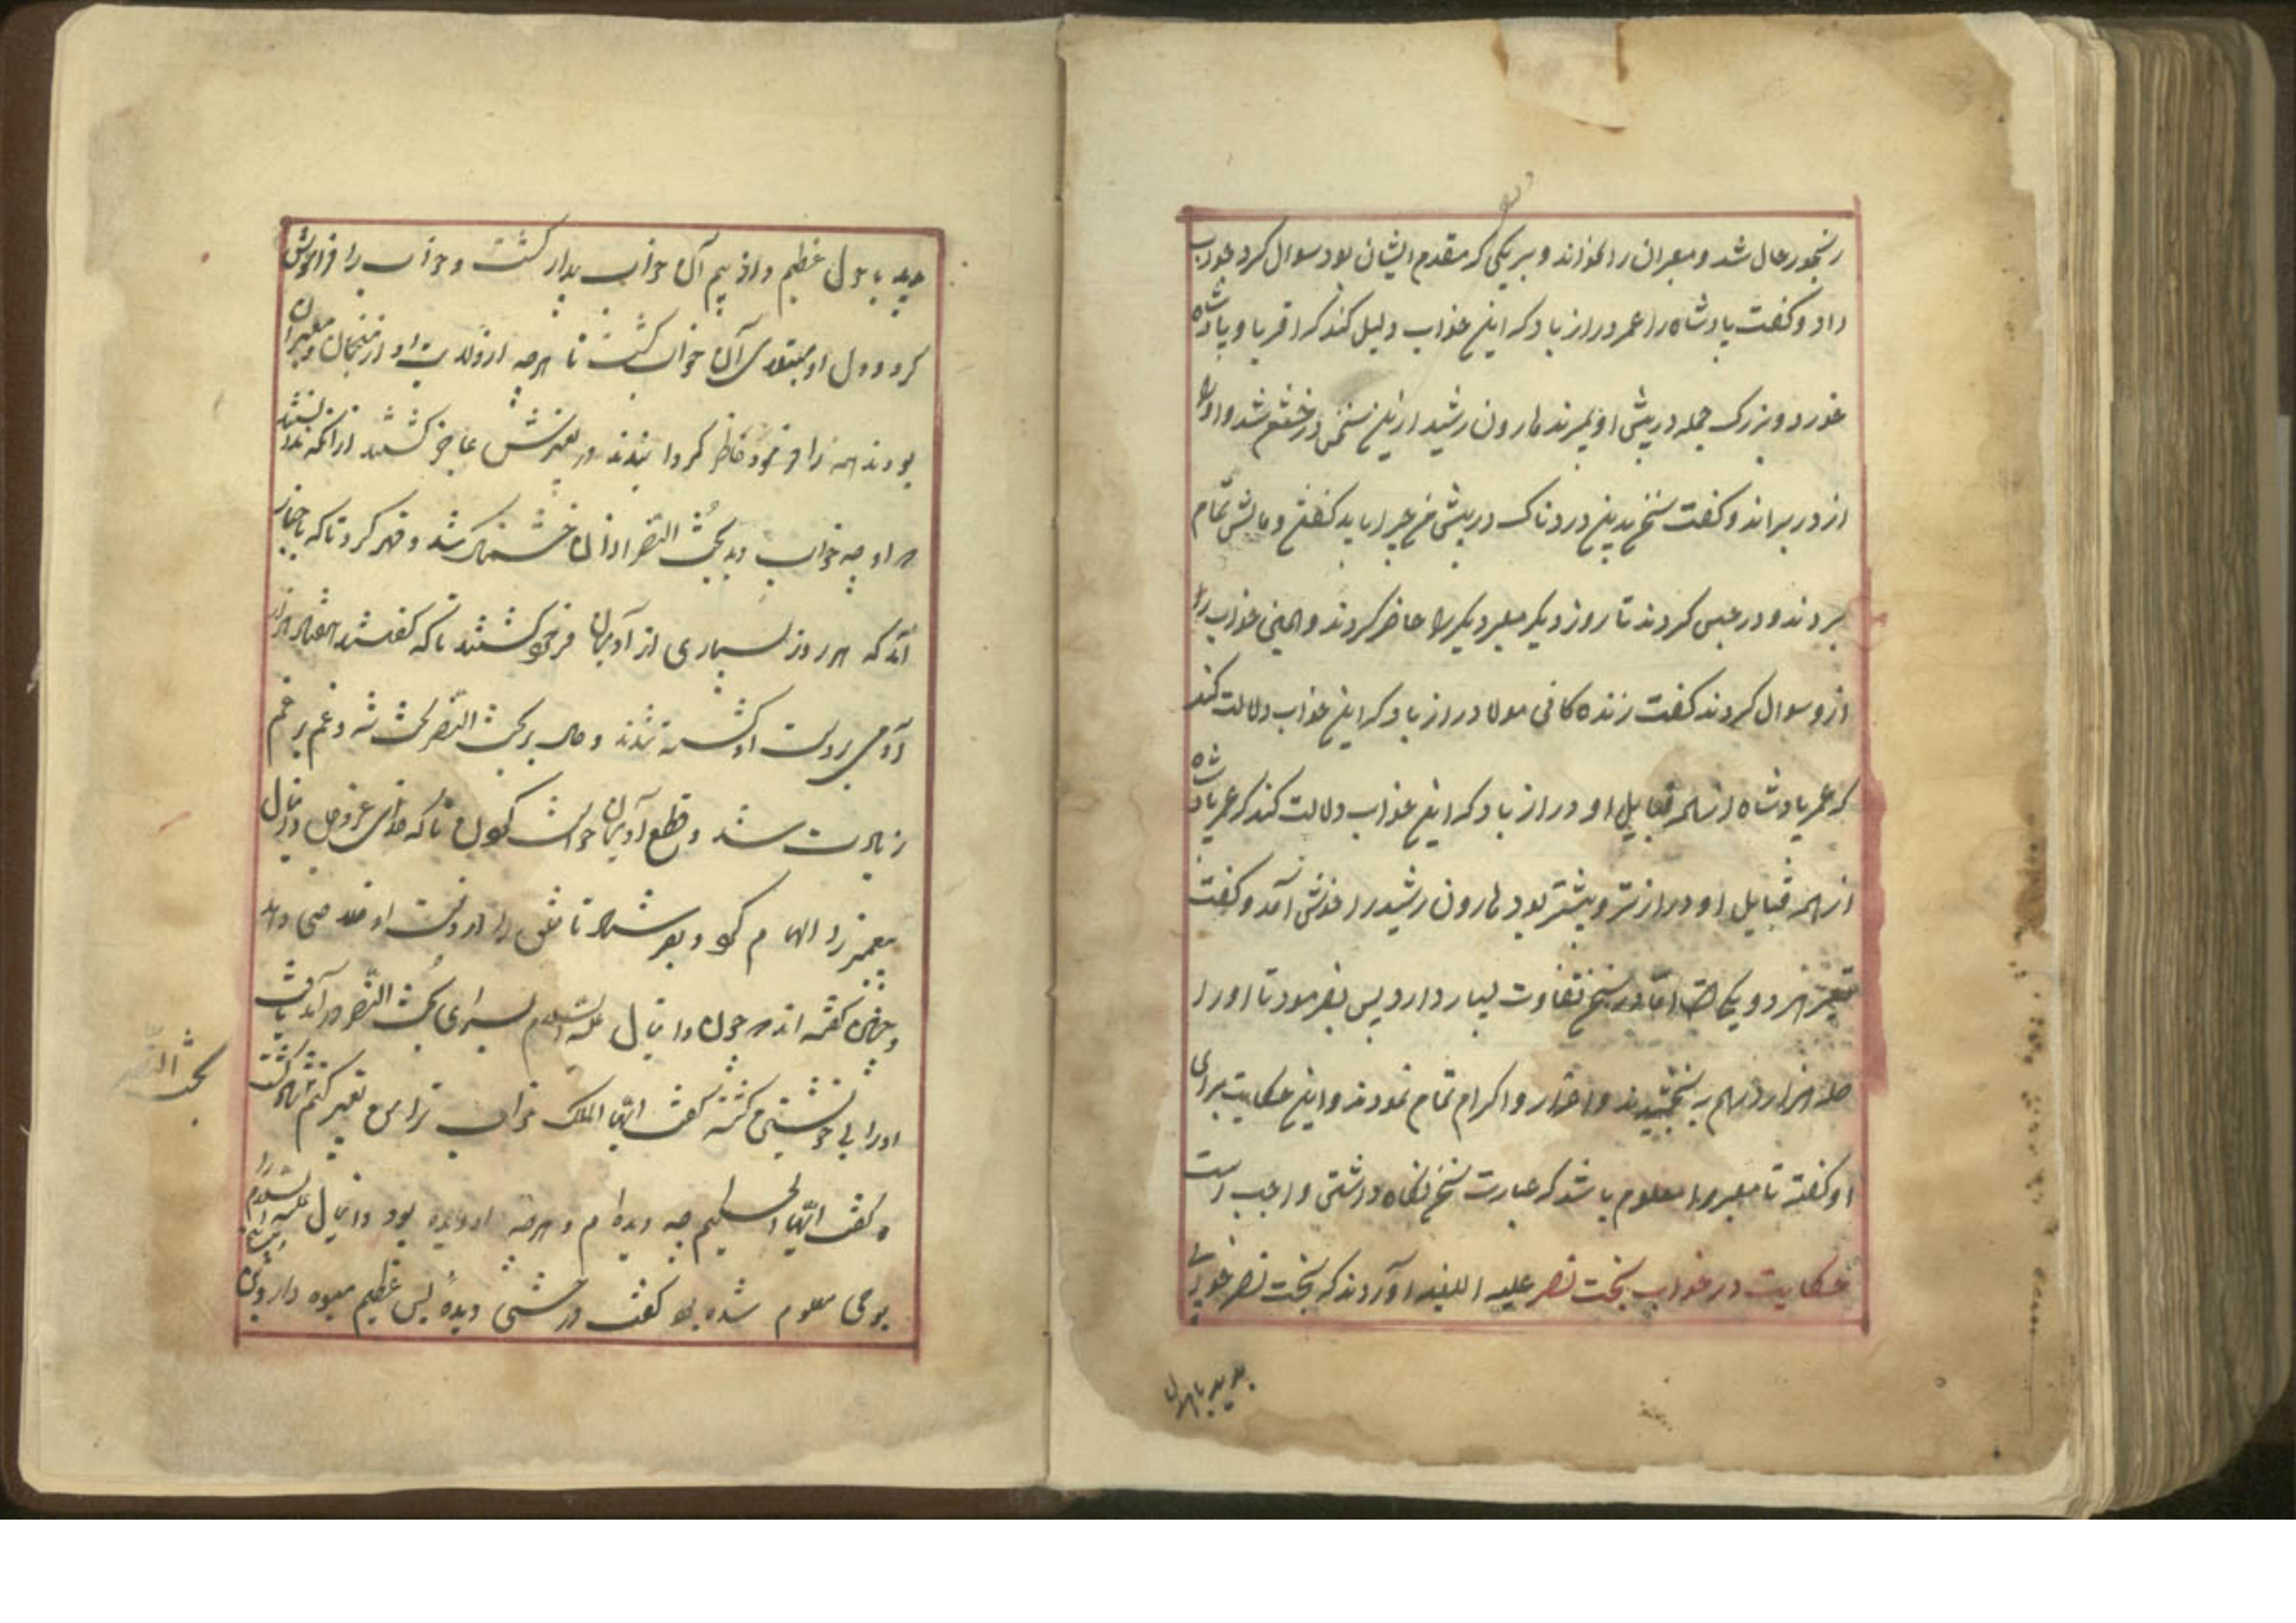 رنجور حال شد و معبران را بخواند و بر یکی که مقدم ایشان بود سوال کرد جواب
داد و گفت پادشاه را عمر دراز باد که این خواب دلیل کند که اقربا و پادشاه
خورد و بزرگ جمله در پیش او بمیرند هارون رشید ازین سخن در خشم شد و او را
از در براند و گفت سخن بدین دردناک در پیش من چرا باید گفتن و مالش تمام
بردند و در حبس کردند تا روز دیگر معبر دیگر را حاضر کردند و همین خواب را
ازو سوال کردند گفت زنده کانی مولا دراز باد که این خواب دلالت کند
که عمر پادشاه از همه قبایل او دراز باد که این خواب دلالت کند که عمر پادشاه
از همه قبایل او درازتر و بیشتر بود هارون رشید را خوش آمد و گفت
تعبیر هر دو یکی است اما در سخن تفاوت بسیار دارد پس بفرمود تا او را
صد هزار درهم بخشیدند و اعزاز و اکرام تمام نمودند و این حکایت برای
او گفته تا معبر را معلوم باشد که عبارت سخن نگاه داشتن واجب است
حکایت در خواب بخت نصر علیه اللعنه آوردند که بخت نصر خوابی
بدید باهول
دید با هول عظیم و از بیم آن خواب بیدار گشت و خواب را فراموش
کرد و دل او مبتلای آن خواب گشت تا هرچه در ولایت او از منجمان و معبران
بودند همه را فرمود حاضر کردانیدند در تعبیرش عاجز گشتند از آنکه ندانستند
که او چه خواب دید بخت النصر از آن خشمناک شد و قهر کرد تا که باخبار
آمد که هر روز بسیاری از آدمیان فرمود کشتند تا که گفتند هفتاد هزار
آدمی بر دست او کشته شدند و حال بر بخت النصر سخت شد و غم بر غم
زیادت شد و قطع آدمیان خواست کردن تا که خدای عزوجل دانیال
پیغمبر را الهام کرد و بفرستاد تا خلق را از دست او خلاصی دهد
و چنین گفته اند که چون دانیال علیه السلام بسرای بخت النصر در آمد یافت
او را بی خویشتن گشته گفت ایها الملک خواب ترا من تعبیر کنم
بخت النصر
و گفت ایها الحکیم چه دیده ام و هرچه او دیده بود دانیال علیه السلام را
بوحی معلوم شده بود گفت درختی دیدهٔ بس عظیم میوه دار